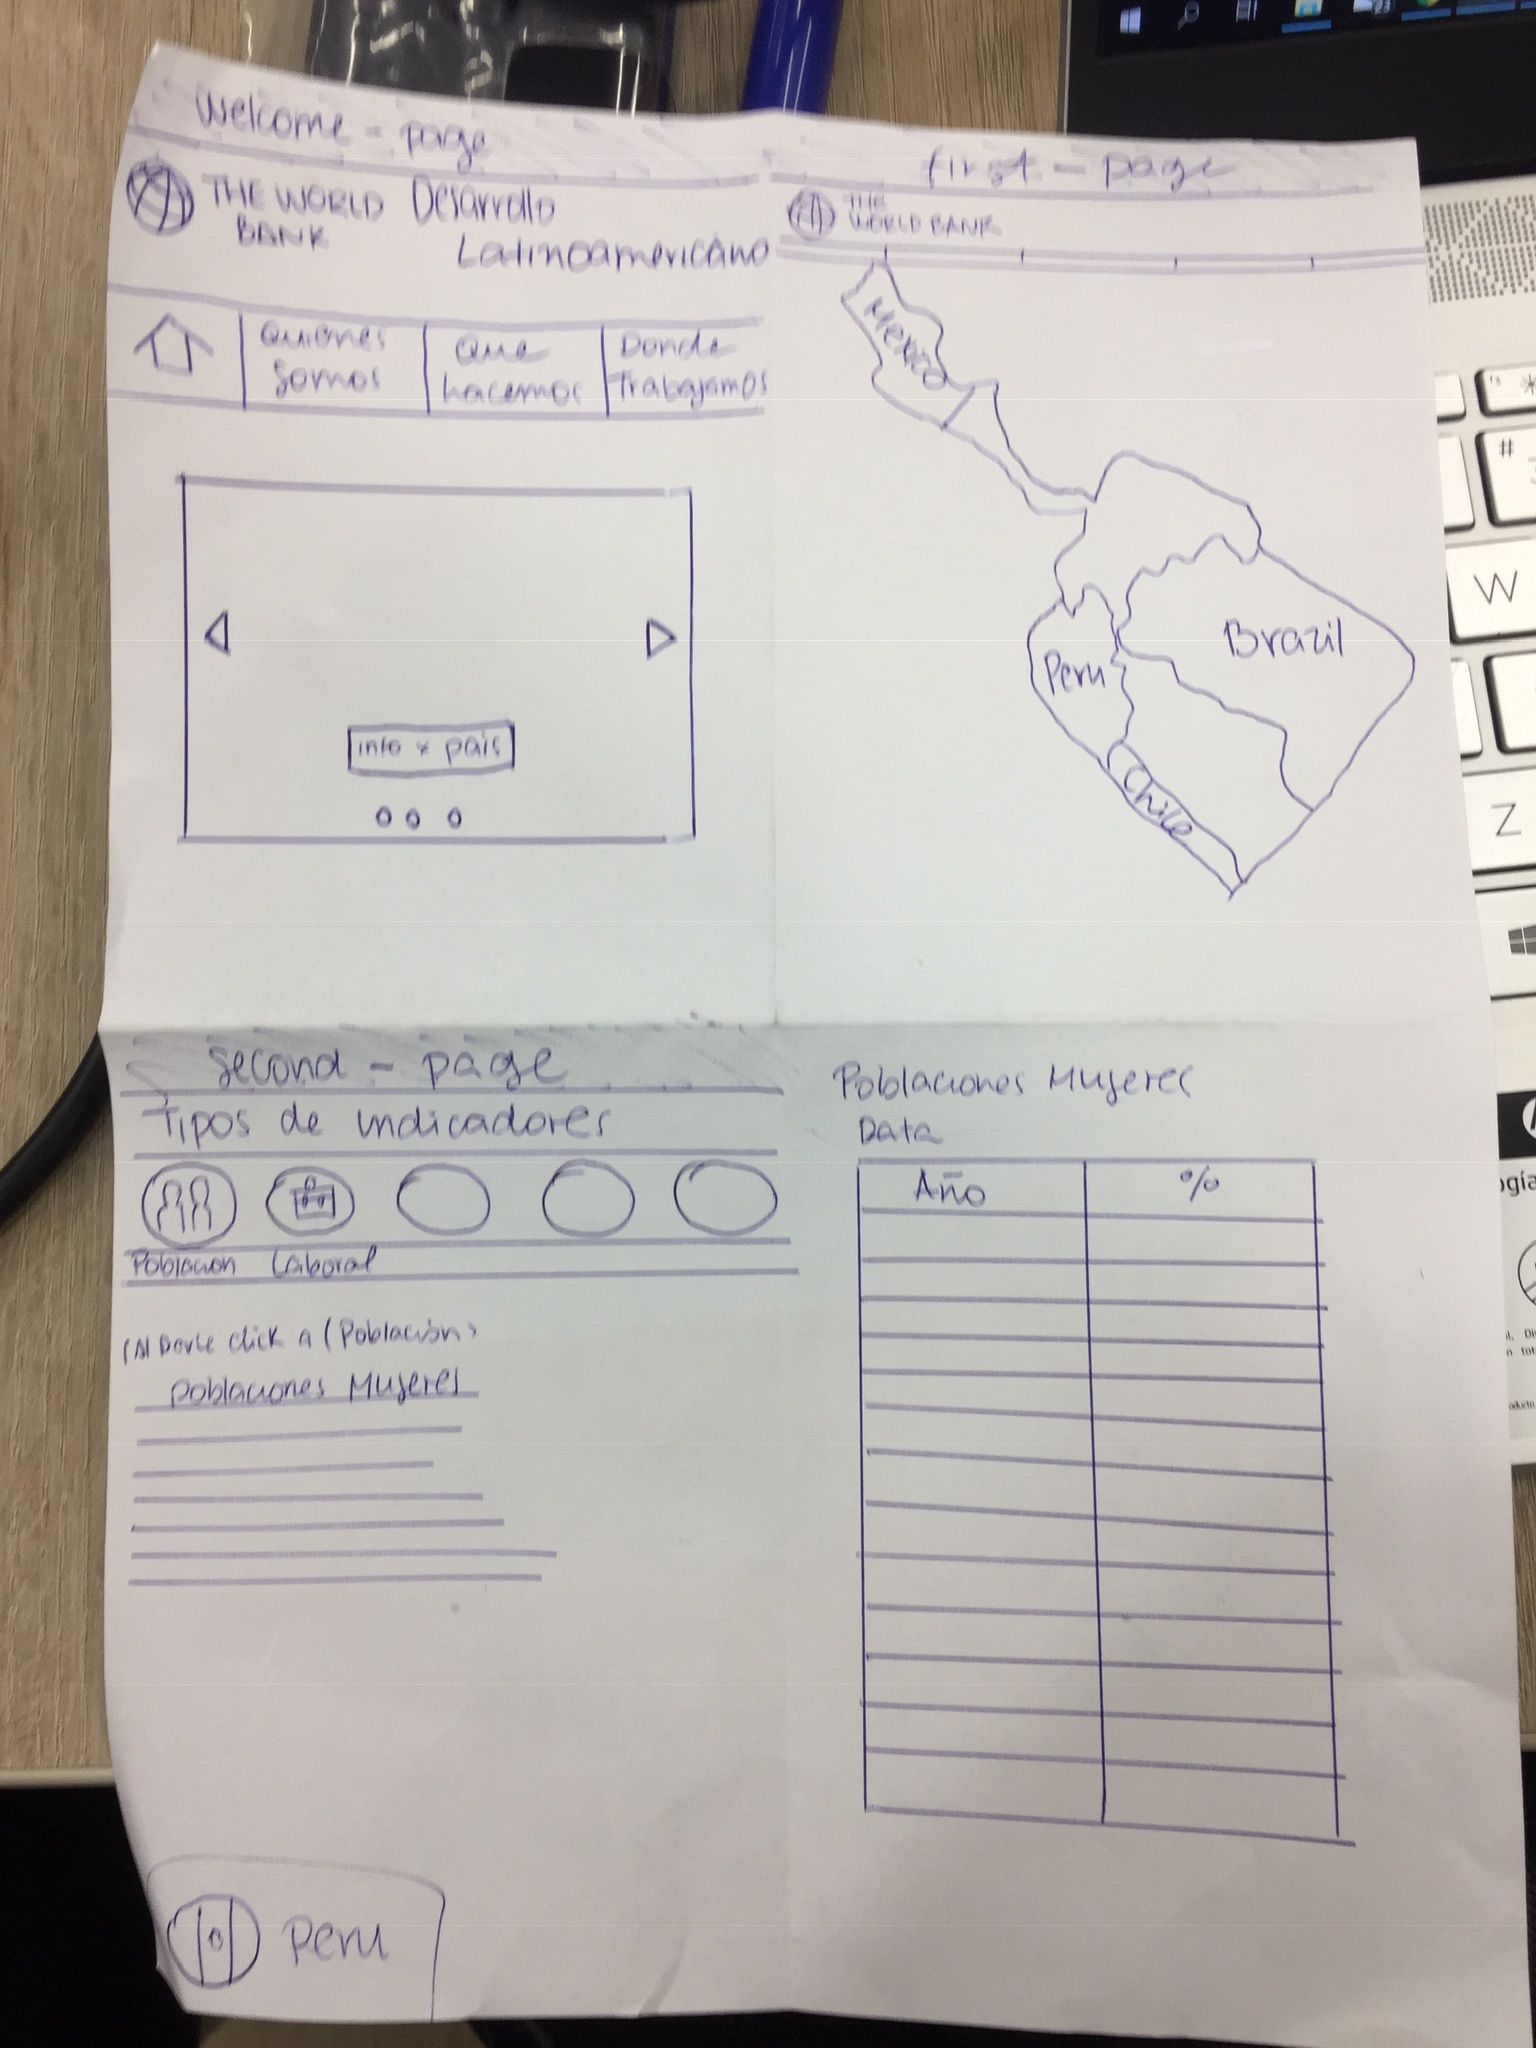 Welcome - page
THE WORLD
BANK
Desarrollo
Latinoamericano
Quienes
Somos
Que
hacemos
Donde
Trabajamos
info x pais
first - page
THE
WORLD BANK
Mexico
Brazil
Peru
Chile
Second - page
Tipos de indicadores
Poblacion
Laboral
(Al Darle click a (Población)
Poblaciones Mujeres
Peru
Poblaciones Mujeres
Data
Año
%
W
Z
#